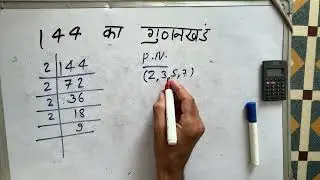 144 का गुणनखंड
P.N.
(2,3,5,7)
2 144
2 72
2 36
2 18
9